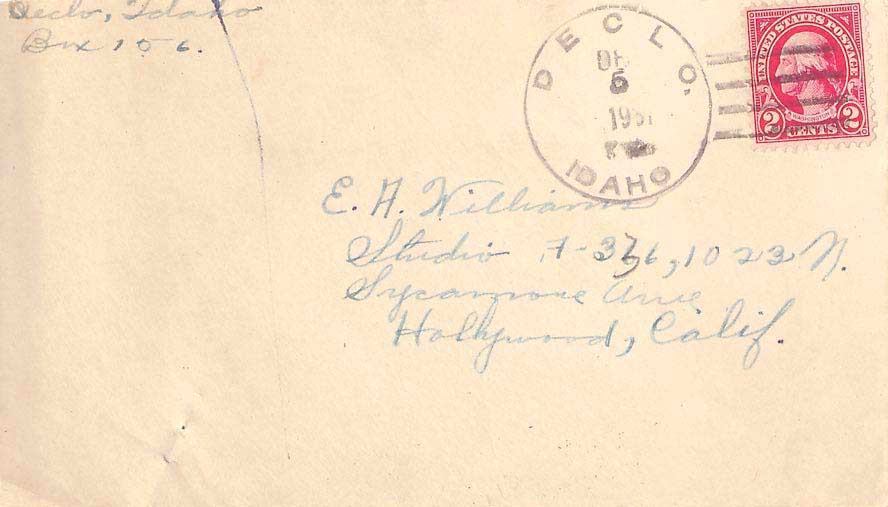 Declo, Idaho
Box 156.
DECLO,
DE
5
IDAHO
UNITED STATES POSTAGE
WASHINGTON
2 CENTS 2
E. A. Williams
Studio 7-336, 1023 N.
Sycamore Ave
Hollywood, Calif.